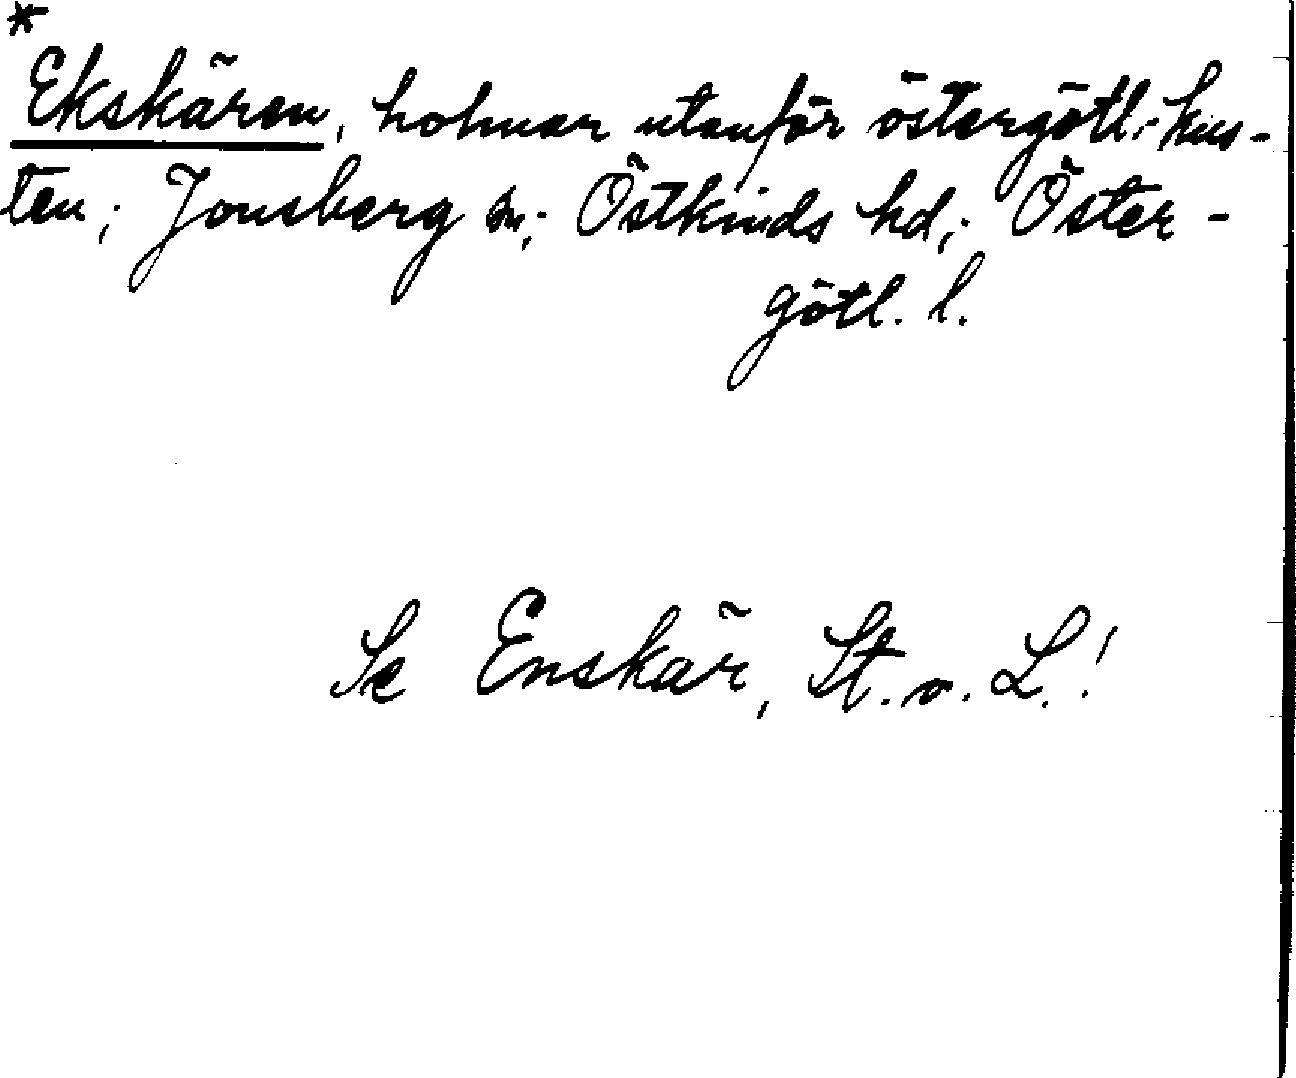 *
Ekskären, holmar utanför östergötl. kus-
ten; Jonsberg sn; Östkinds hd; Öster-
götl. l.
Se Enskär, St. o. L.!